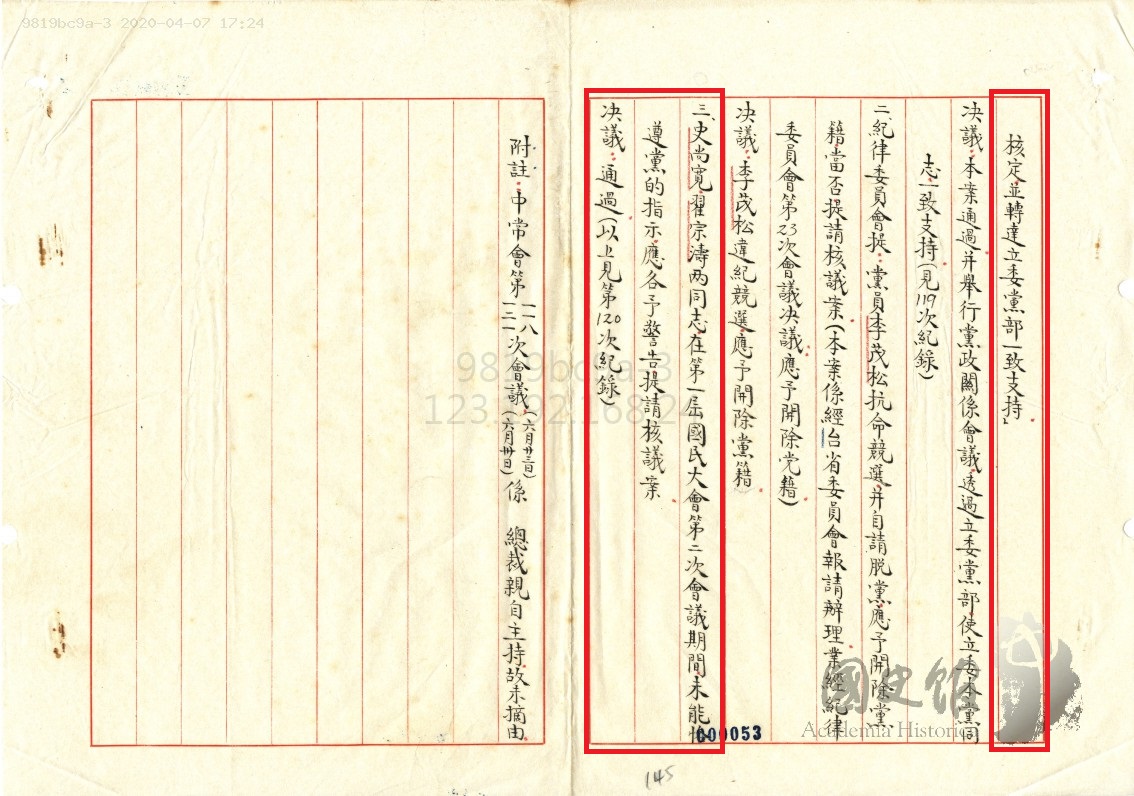 9819bc9a-3 2020-04-07 17:24
核定並轉達立委黨部一致支持」
決議：本案通過并舉行黨政關係會議透過立委黨部使立委本黨同
志一致支持(見119次紀錄)
二、紀律委員會提：黨員李茂松抗命競選并自請脫黨應予開除黨
籍當否提請核議案(本案係經台省委員會報請辦理業經紀律
委員會第23次會議決議應予開除党籍)
決議：李茂松違紀競選應予開除黨籍
三、史尚寬翟宗濤兩同志在第一屆國民大會第二次會議期間未能恪
遵黨的指示應各予警告提請核議案
決議：通過(以上見第120次紀錄)
附註：中常會第一一八 一二一次會議(六月廿三日)(六月卅日)係　總裁親自主持故未摘由
國史館
Academia Historica
000053
145
9819bc9a-3